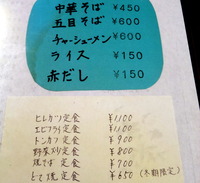 中華そば ¥450
五目そば ¥600
チャーシューメン ¥600
ライス ¥150
赤だし ¥150
ヒレカツ定食 ¥1100
エビフライ定食 ¥1100
トンカツ定食 ¥900
野菜炒め定食 ¥800
焼そば定食 ¥700
とて焼定食 ¥650 (冬期限定)